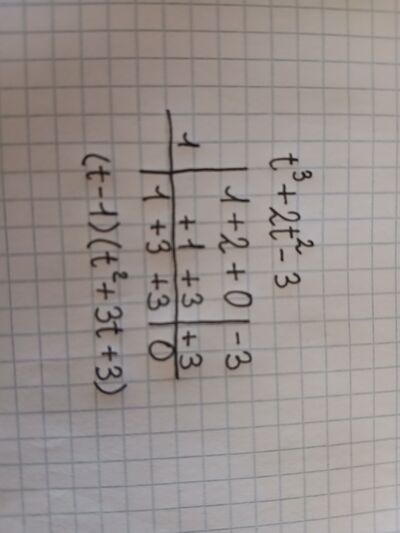 t³+2t²-3
1+2+0 -3
1 +1 +3 +3
1 +3 +3 0
(t-1)(t²+3t+3)